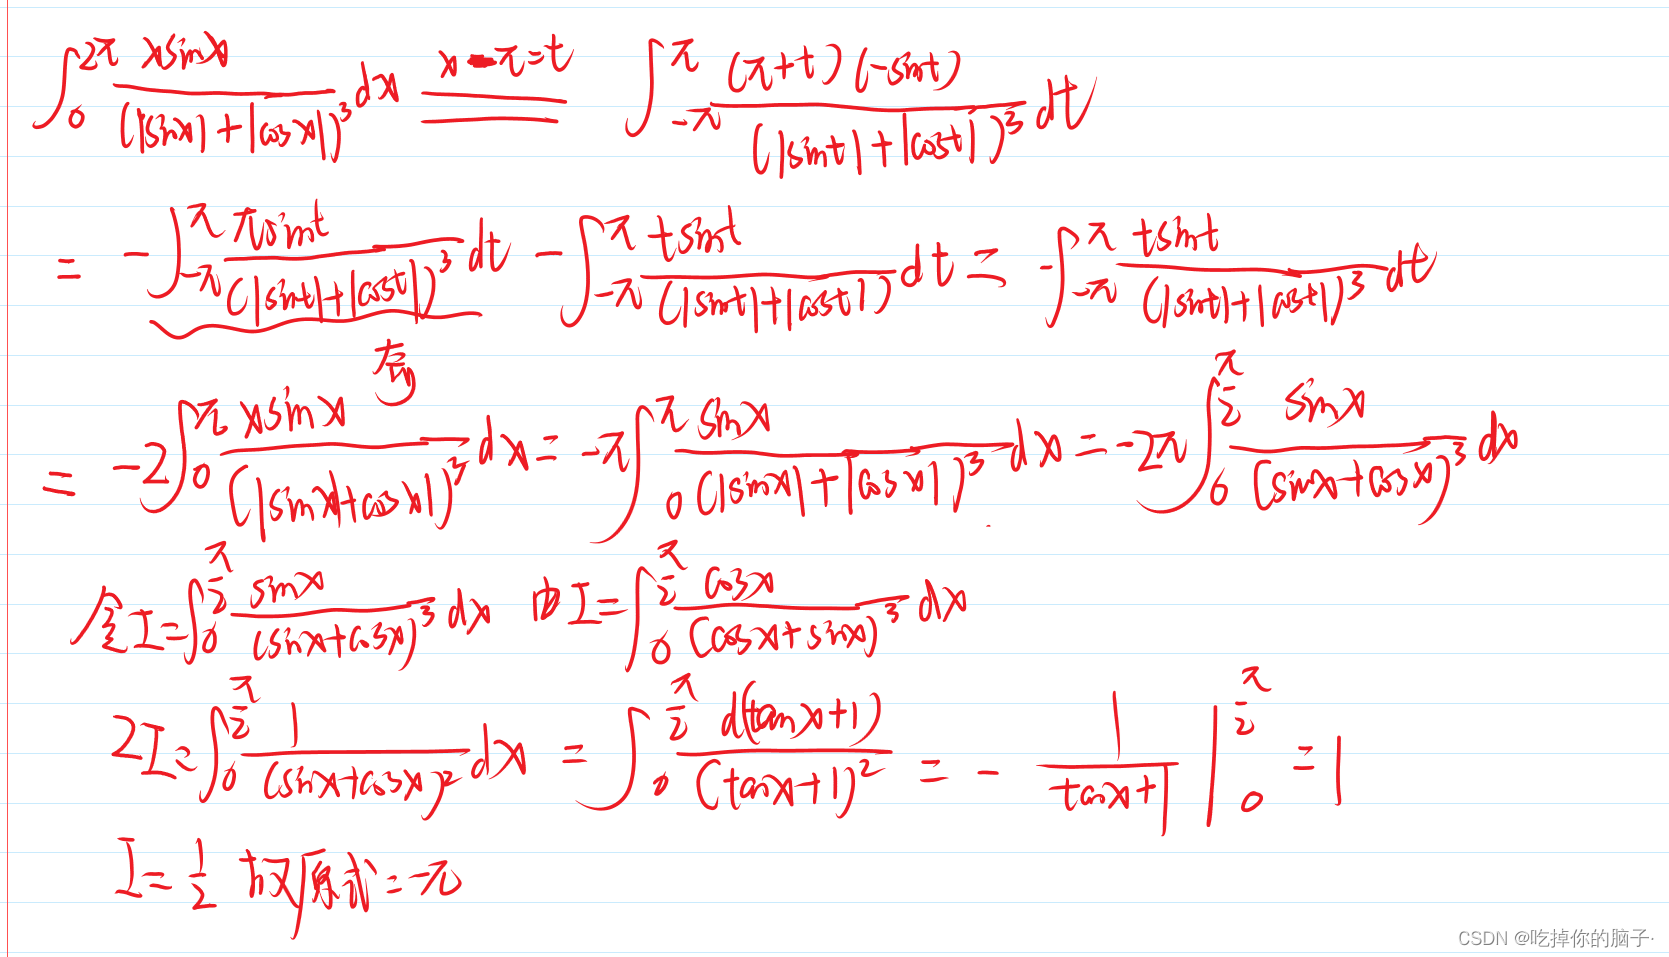 ∫_0^{2π} xsinx/(|sinx|+|cosx|)^3 dx \overset{x-π=t}{=} ∫_{-π}^{π} (π+t)(-sint)/(|sint|+|cost|)^3 dt
= -∫_{-π}^{π} πsint/(|sint|+|cost|)^3 dt - ∫_{-π}^{π} tsint/(|sint|+|cost|) dt = -∫_{-π}^{π} tsint/(|sint|+|cost|)^3 dt
奇
= -2∫_0^{π} xsinx/(|sinx|+cosx|)^3 dx = -π∫_0^{π} sinx/(|sinx|+|cosx|)^3 dx = -2π∫_0^{π/2} sinx/(sinx+cosx)^3 dx
令I=∫_0^{π/2} sinx/(sinx+cosx)^3 dx 由I=∫_0^{π/2} cosx/(cosx+sinx)^3 dx
2I=∫_0^{π/2} 1/(sinx+cosx)^2 dx = ∫_0^{π/2} d(tanx+1)/(tanx+1)^2 = - 1/(tanx+1) |_0^{π/2} = 1
I=1/2 故原式=-π
CSDN @吃掉你的脑子·